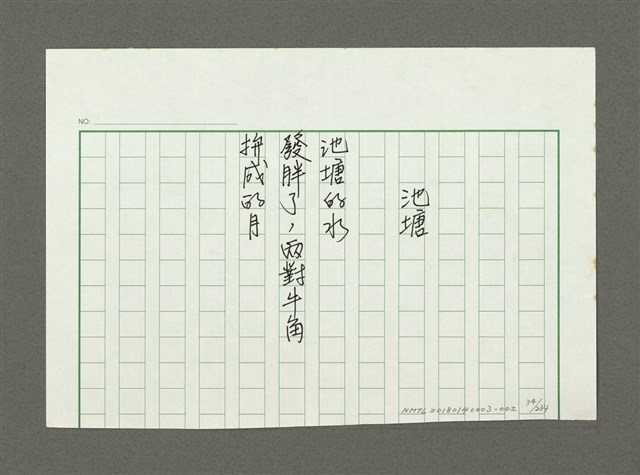 NO:
池塘
池塘的水
發胖了，兩對牛角
拚成的月
NMTL20180140003-002
34/
/284